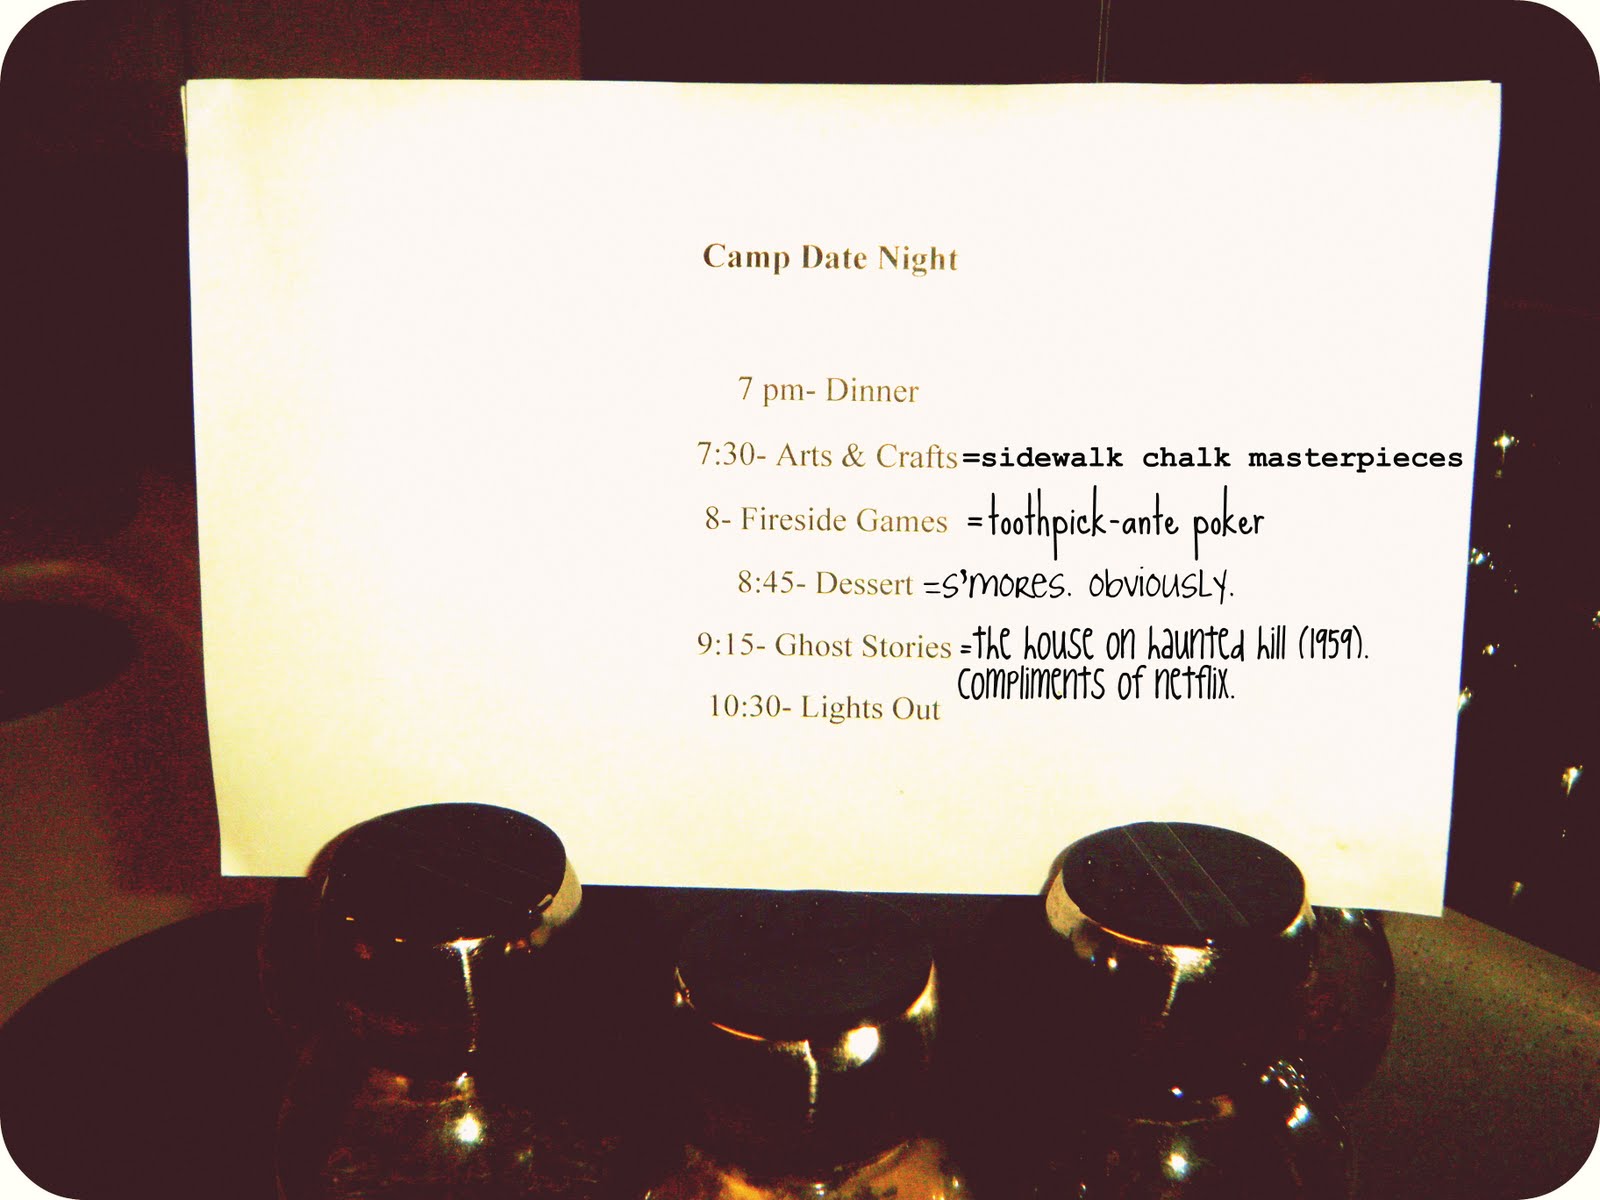 Camp Date Night
7 pm- Dinner
7:30- Arts & Crafts =sidewalk chalk masterpieces
8- Fireside Games =toothpick-ante poker
8:45- Dessert =S'MORES. OBVIOUSLY.
9:15- Ghost Stories =the house on haunted hill (1959).
Compliments of netflix.
10:30- Lights Out